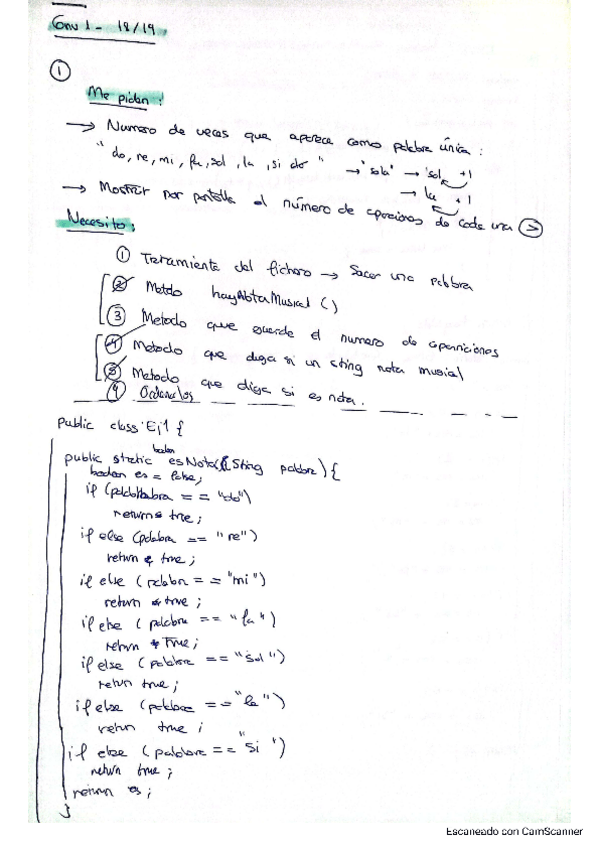 Conv 1 - 18/19.
①
Me piden:
→ Numero de veces que aparece como palabra única:
"do, re, mi, fa, sol, la, si do" → "sola" → sol +1
→ la +1
→ Mostrar por pantalla el número de apariciones de cada una
Necesito:
① Tratamiento del fichero → Sacar una palabra
② Metdo hayNotaMusical ()
③ Metodo que guarde el numero de apariciones
④ Metodo que diga si un string nota musical
⑤ Metodo que diga si es nota.
④ Ordenarlos
public class Ej1 {
public static boolean esNota (String palabra) {
boolean es = false;
if (palabra == "do")
return true;
if else (palabra == "re")
return true;
if else (palabra == "mi")
return true;
if else (palabra == "fa")
return true;
if else (palabra == "sol")
return true;
if else (palabra == "la")
return true;
if else (palabra == "si")
return true;
return es;
}
Escaneado con CamScanner